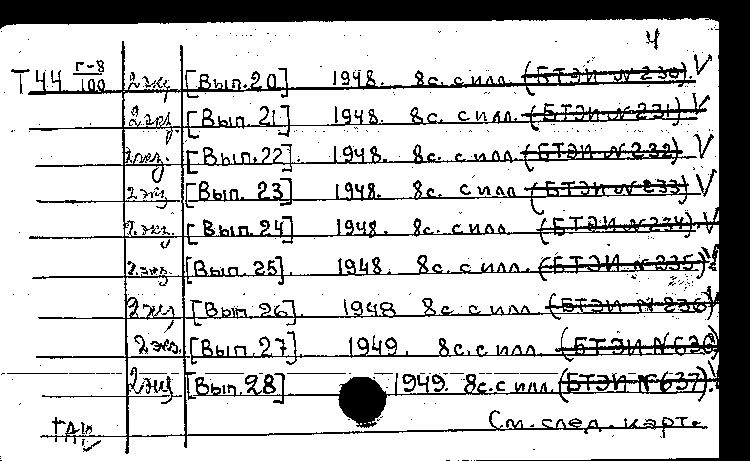 4
Т44 Г-8/100 2 экз. [Вып. 20] 1948. 8с. с илл. (БТЭИ № 230). V
2 экз. [Вып. 21] 1948. 8с. с илл. (БТЭИ № 231) V
2 экз. [Вып. 22]. 1948. 8с. с илл. (БТЭИ № 232) V
2 экз. [Вып. 23] 1948. 8с. с илл. (БТЭИ № 233) V
2 экз. [Вып. 24] 1948. 8с. с илл. (БТЭИ № 234). V
2 экз. [Вып. 25]. 1948. 8с. с илл. (БТЭИ № 235) V
2 экз. [Вып. 26]. 1948 8с. с илл. (БТЭИ № 236) V
2 экз. [Вып. 27]. 1949. 8с. с илл. (БТЭИ № 636)
2 экз. [Вып. 28] 1949. 8с. с илл. (БТЭИ № 637). V
См. след. карт.